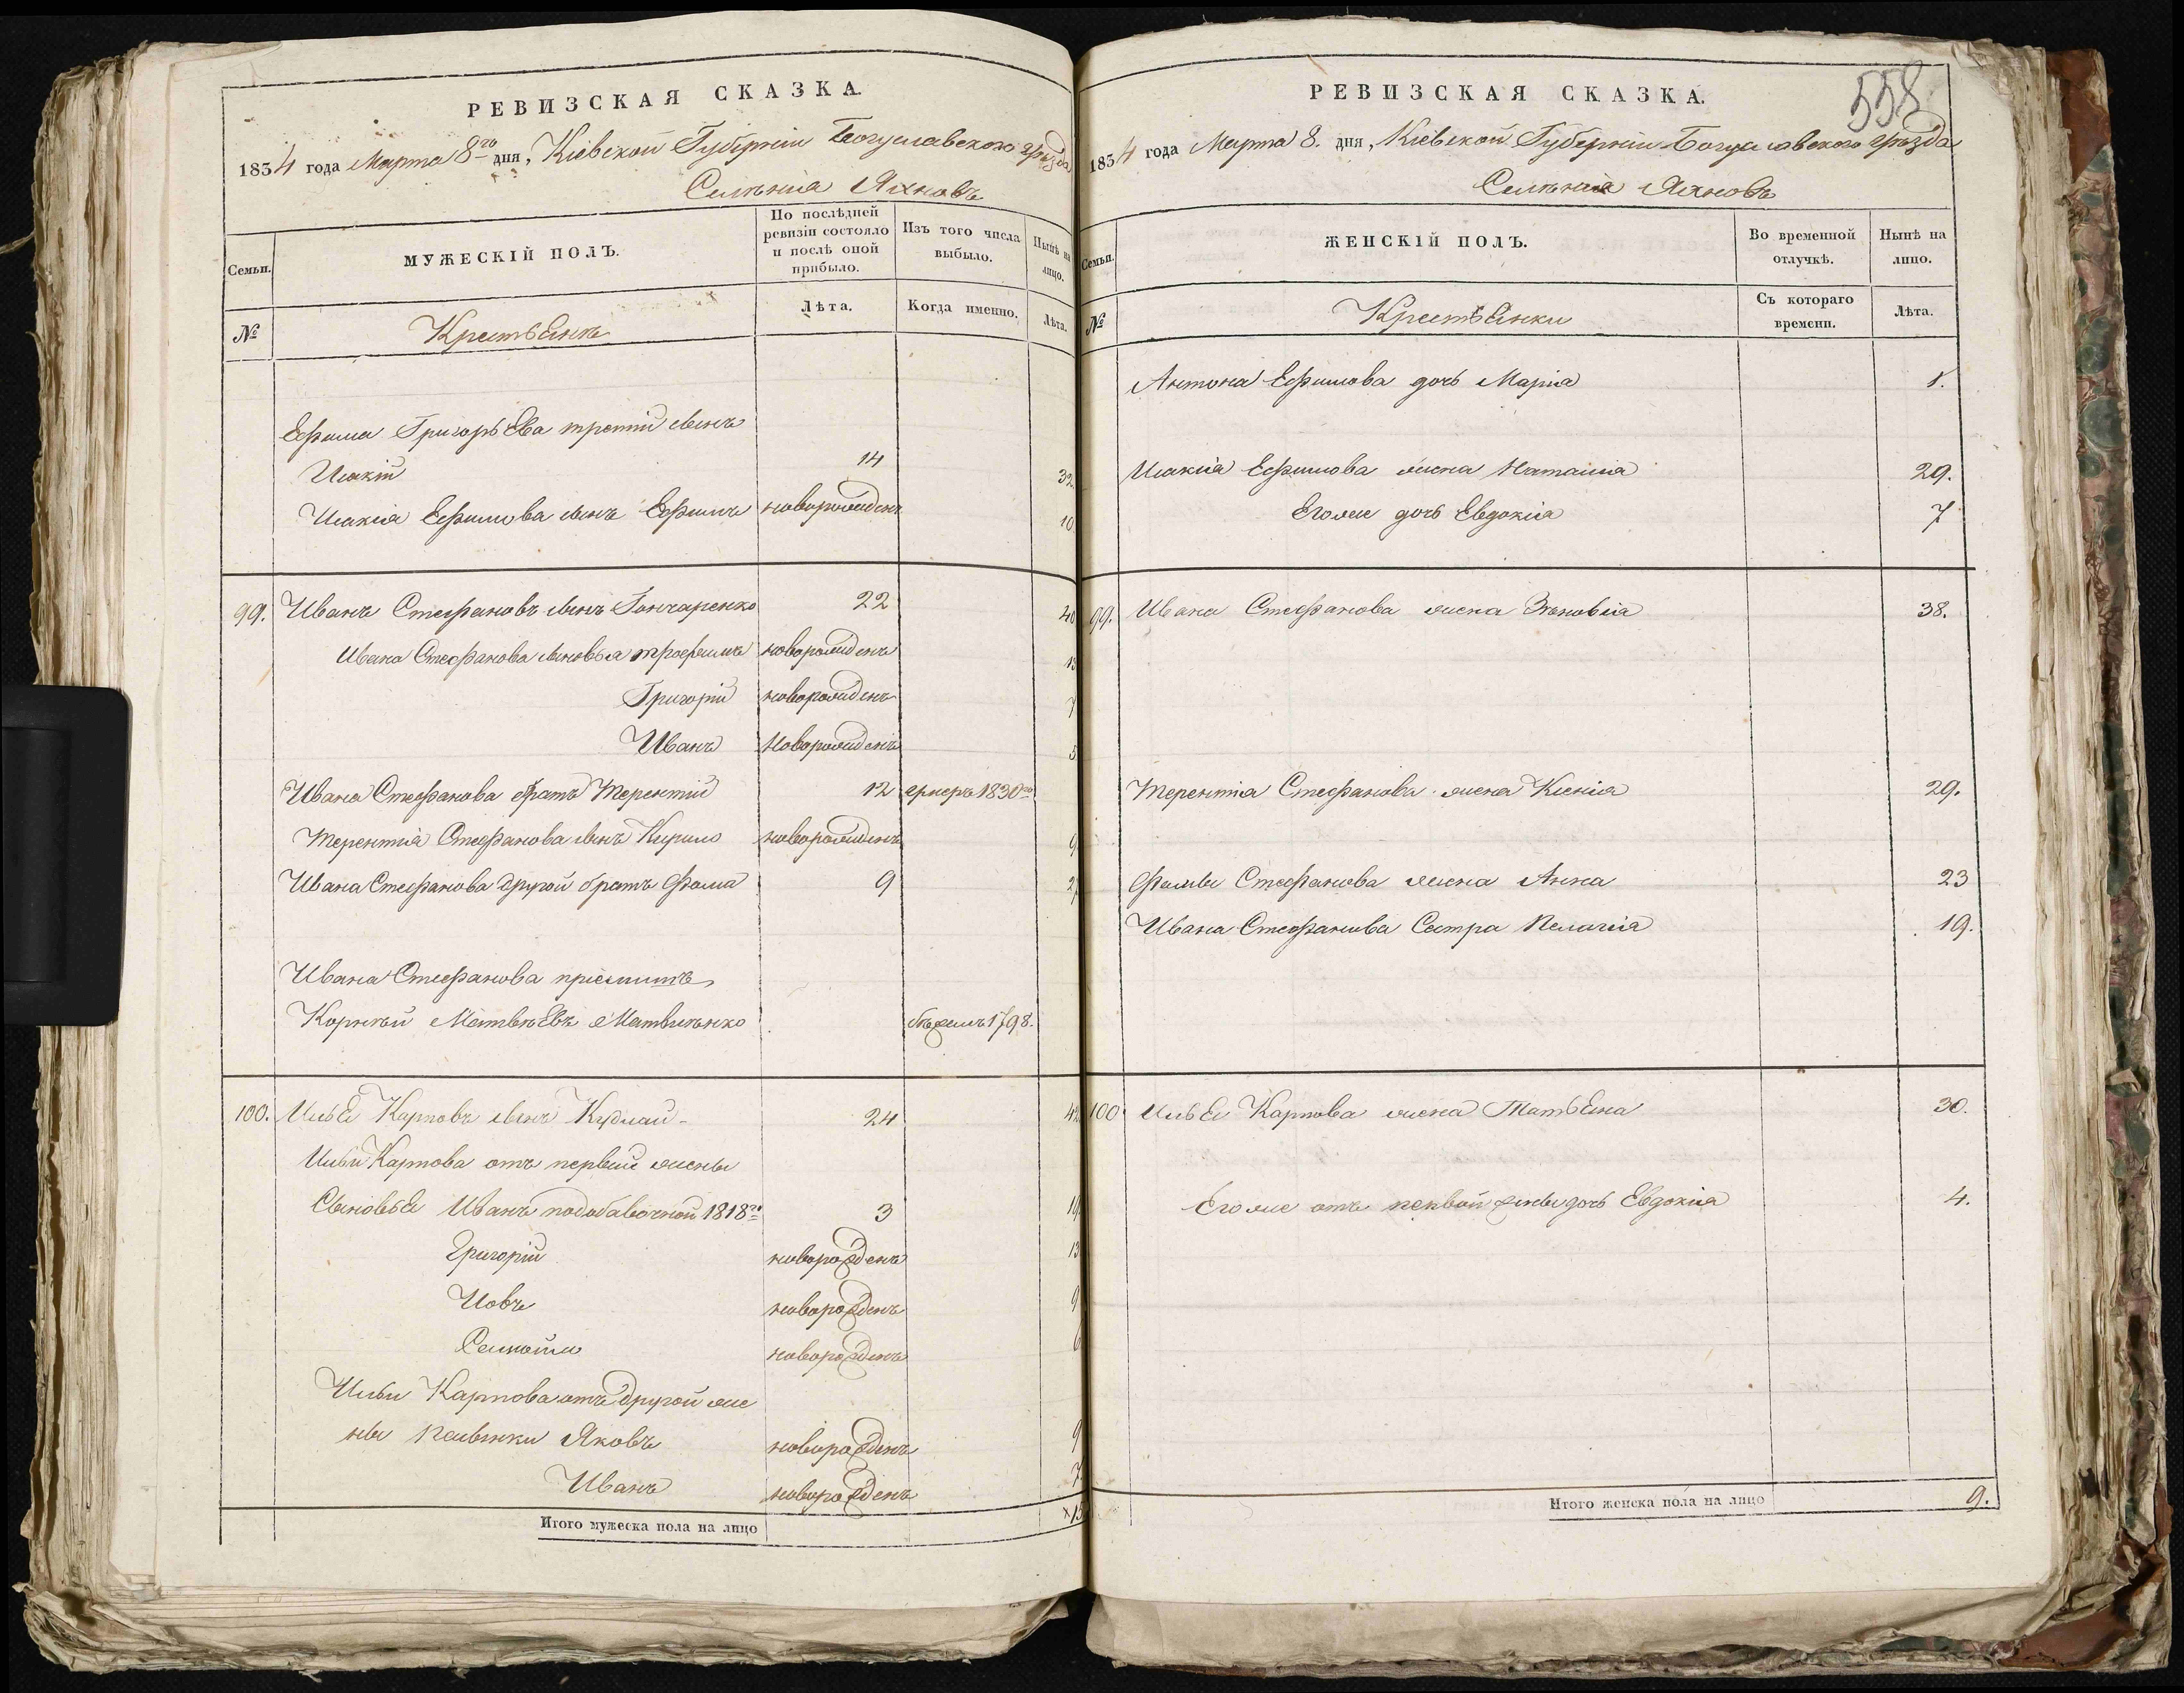 РЕВИЗСКАЯ СКАЗКА.
1834 года Марта 8го дня, Кіевской Губерніи Богуславского уѣзда
Селѣнія Яхновъ
Семьи.
МУЖЕСКІЙ ПОЛЪ.
По послѣдней ревизіи состояло и послѣ оной прибыло.
Изъ того числа выбыло.
Нынѣ на лицо.
№
Крестьянъ
Лѣта.
Когда именно.
Лѣта.
Ефима Григорьева третій сынъ
Исакій 14 32.
Исакія Ефимова сынъ Ефимъ новорожденъ 10
99. Иванъ Стефановъ сынъ Гончаренко 22 40
Ивана Стефанова сыновья трофимъ новорожденъ 13
Григорій новорожденъ 7
Иванъ Новорожденъ 5
Ивана Стефанова братъ Терентій 12 умеръ 1830го
Терентія Стефанова сынъ Кирило новорожденъ 9
Ивана Стефанова другой братъ Фома 9 27
Ивана Стефанова пріемишъ
Корнѣй Матвѣевъ Матвиѣнко бѣжалъ 1798.
100. Илья Карповъ сынъ Кудлай 24 42
Ильи Карпова отъ первой жены
Сыновья Иванъ подобавочной 1818го 3 19
Григорій новорожденъ 13
Іовъ новорожденъ 9
новорожденъ 6
Ильи Карпова отъ другой же
ны Яковъ новорожденъ 9
Иванъ новорожденъ 7
Итого мужеска пола на лицо 15
558
РЕВИЗСКАЯ СКАЗКА.
1834 года Марта 8. дня, Кіевской Губерніи Богуславского уѣзда
Селѣнія Яхновъ
Семьи.
ЖЕНСКІЙ ПОЛЪ.
Во временной отлучкѣ.
Нынѣ на лицо.
№
Крестьянки
Съ котораго времени.
Лѣта.
Антона Ефимова дочь Марія 1.
Исакія Ефимова жена Наталія 29.
Егоже дочь Евдокія 7
99. Ивана Стефанова жена Зѣновія 38.
Терентія Стефанова жена Ксенія 29.
Фомы Стефанова жена Анна 23
Ивана Стефанова Сестра Пелагія 19.
100 Ильи Карпова жена Татьяна 30.
Егоже отъ первой жены дочь Евдокія 4.
Итого женска пола на лицо 9.